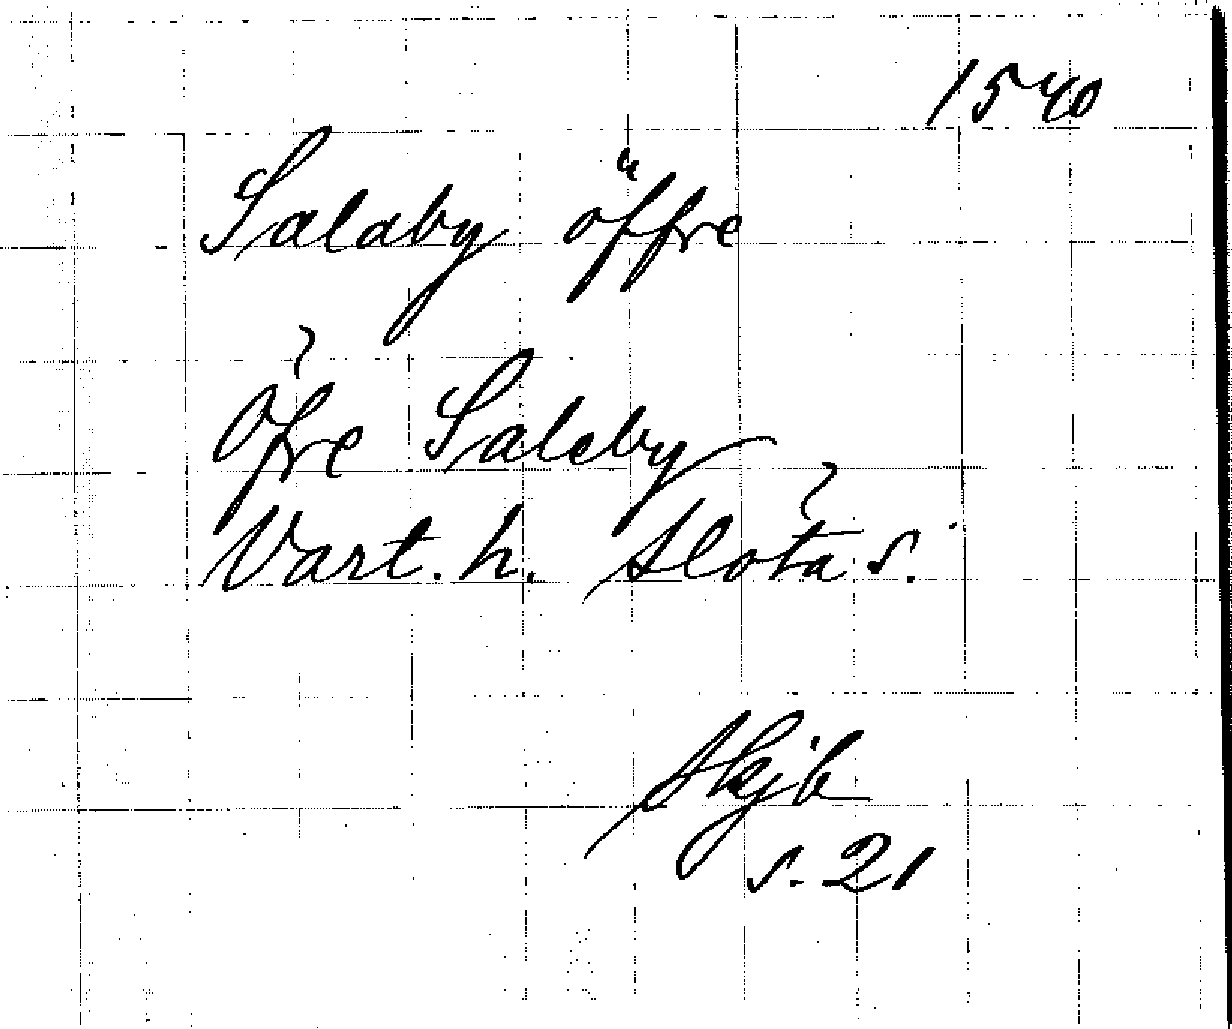 1540
Salaby öffre
Ofre Saleby
Vart. h. Slöta s.
Skjb
s. 21